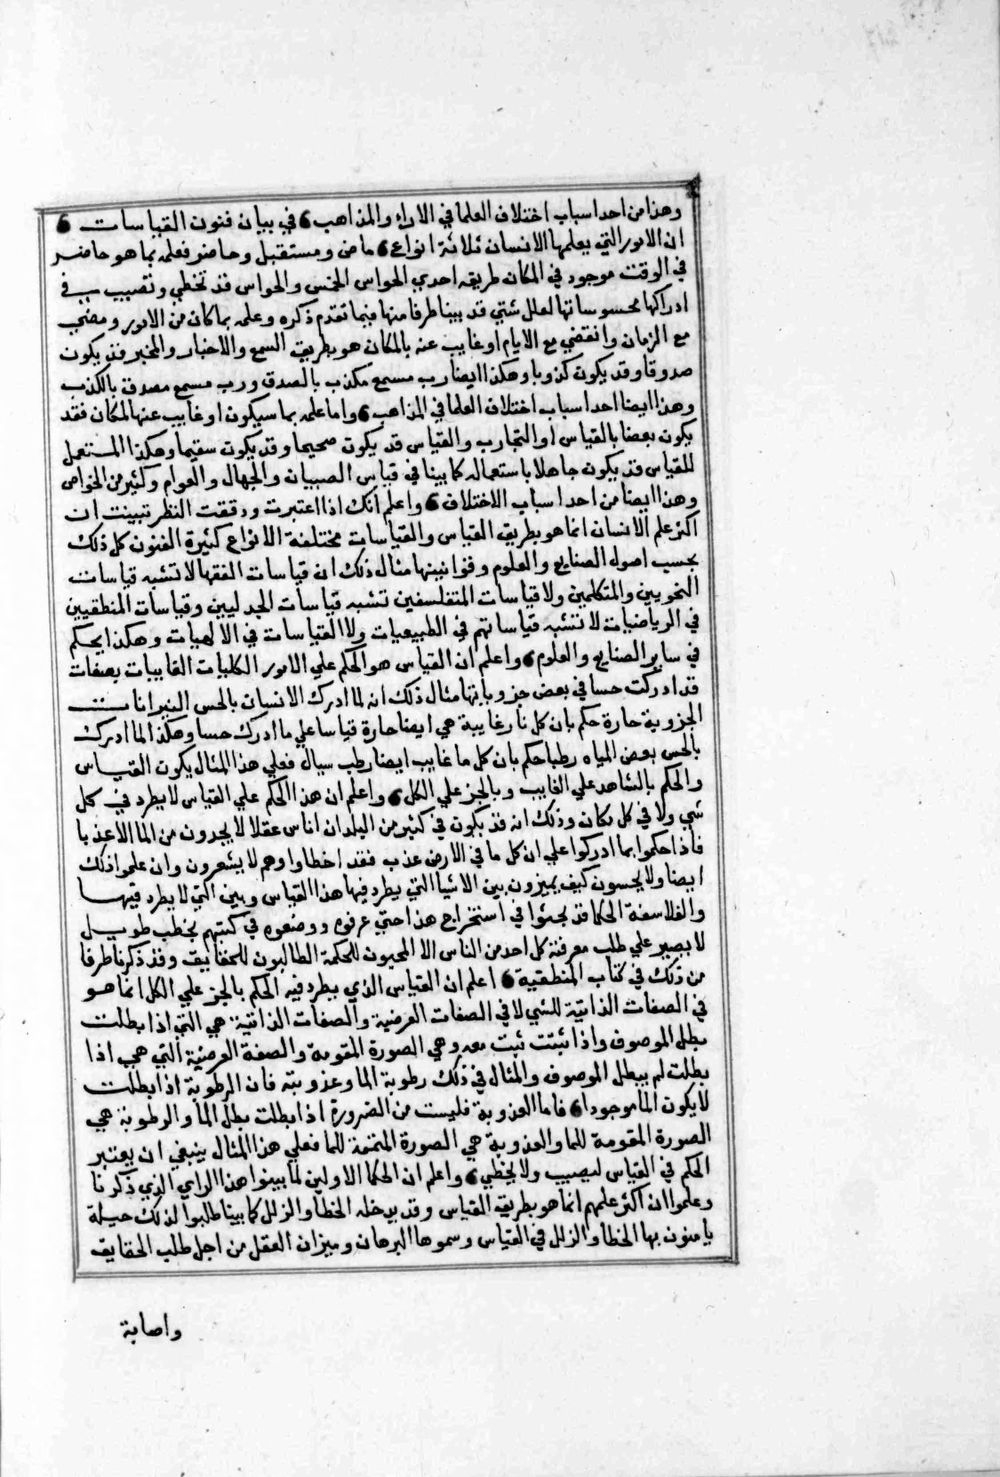 وهذا من احد اسباب اختلاف العلما في الاراء والمذاهب 6 في بيان فنون القياسات 6
ان الامور التي يعلمها الانسان ثلاثة انواع 6 ماض ومستقبل وحاضر فعلمه بما هو حاضر
في الوقت موجود في المكان طريقه احدي الحواس الخمس والحواس قد تخطي وتصيب في
ادراكها محسوساتها لعلل شتي قد بينا طرفا منها فيما تقدم ذكره وعلمه بما كان من الامور ومضي
مع الزمان وانقضي مع الايام او غايب عنه بالمكان هو بطريق السمع والاخبار والمخبر قد يكون
صدوقا وقد يكون كذوبا وهكذا ايضا رب مسمع مكذب بالصدق ورب مسمع مصدق بالكذب
وهذا ايضا احد اسباب اختلاف العلما في المذاهب 6 واما علمه بما سيكون او غايب عنها لمكان فقد
يكون بعضا بالقياس او التجارب والقياس قد يكون صحيحا وقد يكون سقيما وهكذا المستعمل
للقياس قد يكون جاهلا باستعماله كما بينا في قياس الصبيان والجهال والعوام وكثير من الخواص
وهذا ايضا من احد اسباب الاختلاف 6 واعلم انك اذا اعتبرت ودققت النظر تبينت ان
اكثر علم الانسان انما هو بطريق القياس والقياسات مختلفة الانواع كثيرة الفنون كل ذلك
بحسب اصول الصنايع والعلوم وقوانينها مثال ذلك ان قياسات الفقها لا تشبه قياسات
النحويين والمتكلمين ولا قياسات المتفلسفين تشبه قياسات الجدليين وقياسات المنطقيين
في الرياضيات لا تشبه قياساتهم في الطبيعيات ولا القياسات في الالهيات وهكذا يحكم
في ساير الصنايع والعلوم 6 واعلم ان القياس هو الحكم علي الامور الكليات الغايبات بصفات
قد ادركت حسا في بعض جزوياتها مثال ذلك انه لما ادرك الانسان بالحس النيرانات
الجزوية حارة حكم بان كل نار غايبة هي ايضا حارة قياسا علي ما ادرك حسا وهكذا لما ادرك
بالحس بعض المياه رطبا حكم بان كل ما غايب ايضا رطب سيال فعلي هذا المثال يكون القياس
والحكم بالشاهد علي الغايب وبالجز علي الكل 6 واعلم ان هذا الحكم علي القياس لا يطرد في كل
شي ولا في كل مكان وذلك انه قد يكون في كثير من البلدان اناس عقلا لا يجدون من الما الا عذبا
فاذا حكموا بما ادركوا علي ان كل ما في الارض عذب فقد اخطاوا وهم لا يشعرون وان علموا ذلك
ايضا ولا يحسون كيف يميزون بين الاشيا التي يطرد فيها هذا القياس وبين التي لا يطرد فيها
والفلاسفة الحكما قد بحثوا في استخراج هذا حتي عرفوه ووضعوه في كتبهم بخطب طويل
لا يصبر علي طلب معرفته كل احد من الناس الا المحبون للحكمة الطالبون للحقايق وقد ذكرنا طرفا
من ذلك في كتاب المنطقية 6 اعلم ان القياس الذي يطرد فيه الحكم بالجز علي الكل انما هو
في الصفات الذاتية للشي لا في الصفات العرضية والصفات الذاتية هي التي اذا بطلت
بطل الموصوف واذا ثبتت ثبت معه وهي الصورة المقومة والصفة العرضية التي هي اذا
بطلت لم يبطل الموصوف والمثال في ذلك رطوبة الما وعذوبته فان الرطوبة اذا بطلت
لا يكون الما موجودا 6 فاما العذوبة فليست من الضرورة اذا بطلت بطل الما والرطوبة هي
الصورة المقومة للما والعذوبة هي الصورة المتممة للما فعلي هذا المثال ينبغي ان يعتبر
الحكم في القياس ليصيب ولا يخطي 6 واعلم ان الحكما الاولين لما بينوا هذا الراي الذي ذكرنا
وعلموا ان اكثر علمهم انما هو بطريق القياس وقد يدخله الخطا والزلل كما بينا طلبوا لذلك حيلة
يامنون بها الخطا والزلل في القياس وسموها البرهان وميزان العقل من اجل طلب الحقايق
واصابة